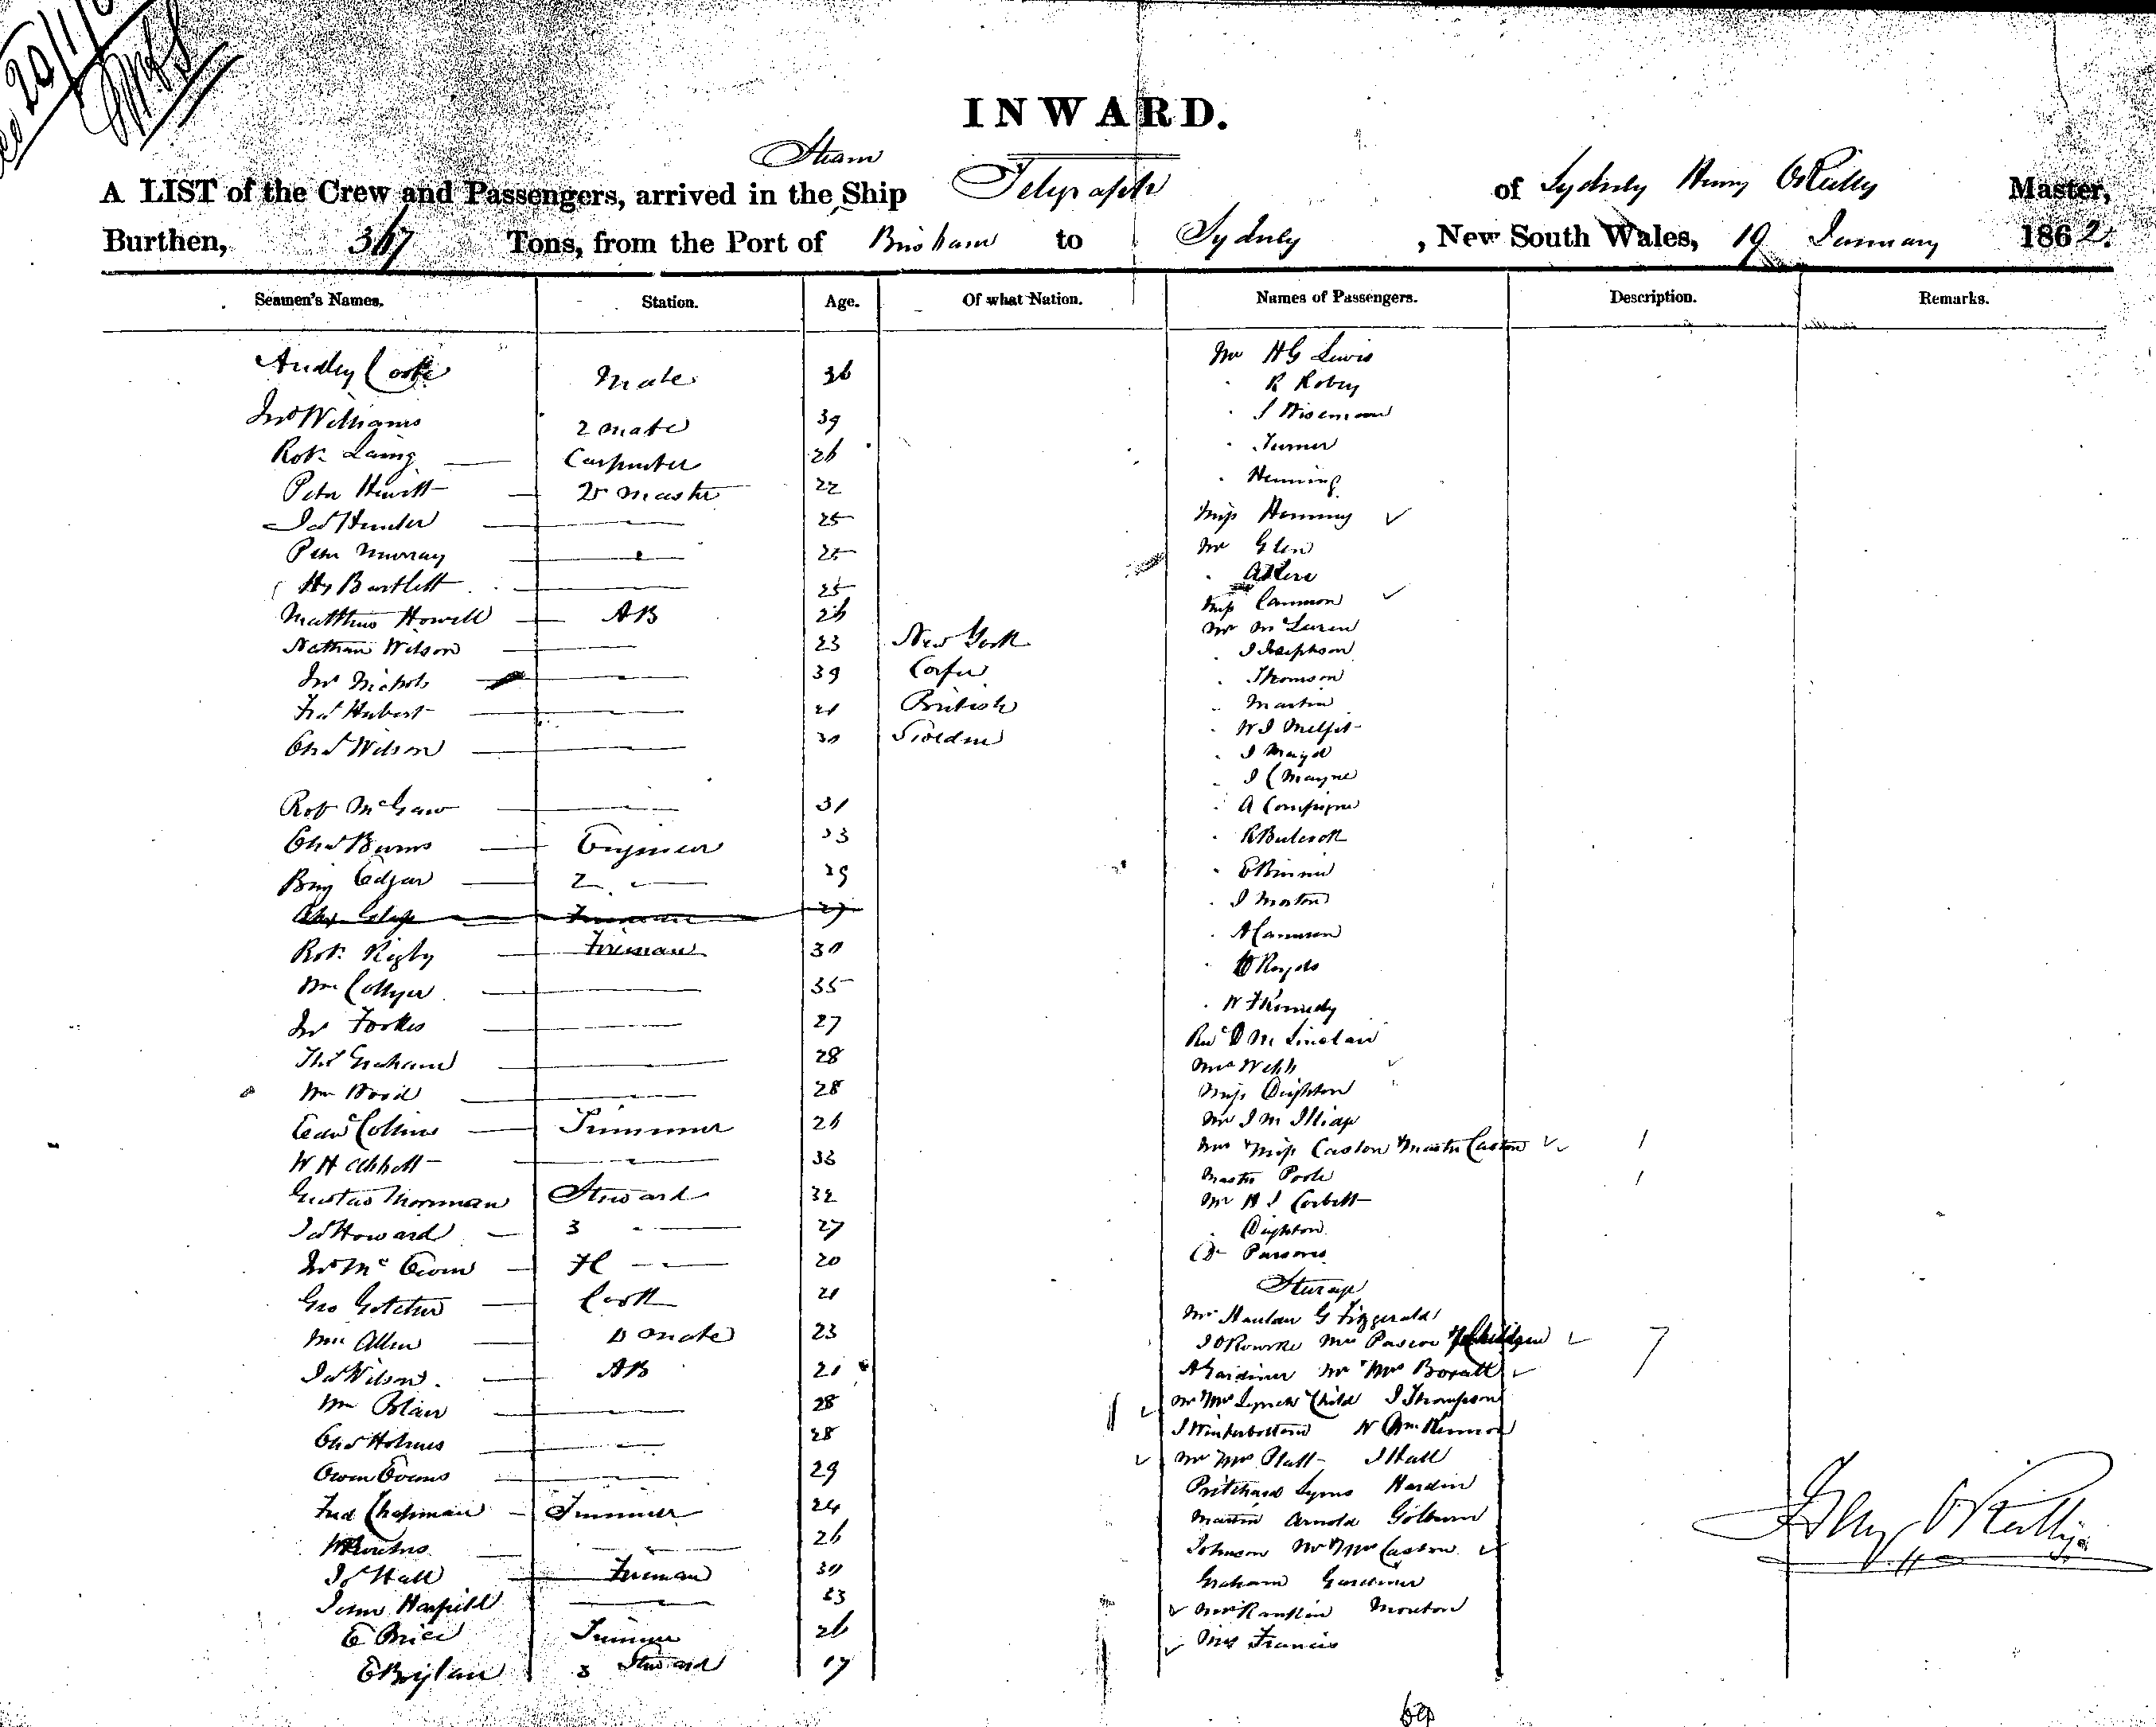 20/1/6
INWARD.
Steam
A LIST of the Crew and Passengers, arrived in the Ship Telegraph of Sydney Henry O'Reilly Master,
Burthen, 367 Tons, from the Port of Brisbane to Sydney, New South Wales, 19 January 1862.
Seamen's Names. Station. Age. Of what Nation. Names of Passengers. Description. Remarks.
Audley Coote Mate 36
Jno Williams 2 mate 39
Robt Laing Carpenter 26
Peter Hewitt 2r master 22
Jas Hunter 25
Peter Murray 25
Hy Bartlett 25
Matthew Howell AB 26
Nathan Wilson 23 New York
Jno Nichols 39 Corfu
Fras Hubert 21 British
Chas Wilson 30 Sweden
Robt McGaw 31
Chas Burns Engineer 33
Benj Edgar 2 29
Fireman 27
Robt Rigby Fireman 30
Wm Collyer 35
Jno Fookes 27
Thos Graham 28
Wm Wood 28
Edwd Collins Trimmer 26
W H Abbott 33
Gustav Morrman Steward 32
Jas Howard 3 27
Jno McEwen 20
Geo Gotcher Cook 21
Wm Allen mate 23
Jas Wilson AB 21
Wm Blair 28
Chas Holmes 28
Owen Evans 29
Fred Chapman Trimmer 24
26
Jos Hall Fireman 30
John Hatfield 23
E Price Trimmer 26
E Boylan 3 Steward 17
Mr H G Lewis
R Robey
J Wiseman
Turner
Henning
Miss Henning
Mr Glen
Miss Cannon
Mr McLaren
J Josephson
Thomson
Martin
W J
J
J C Mayne
A Compigne
R Bulcock
E
J Morton
A Cameron
Royds
W F Kennedy
Revd D M Sinclair
Mrs Webb
Miss Deighton
Mr J M Illidge
Mrs & Miss Caston & Master Caston 1
Master Poole 1
Mr H J Corbett
Deighton
Dr Parsons
Steerage
Mr Hanlan G Fitzgerald
J O'Rourke Mrs Pascoe 7 Children 7
A Gardiner Mr & Mrs
Mr Mrs Lynch & Child J Thompson
J Winterbottom
Mr Mrs Platt J Hall
Pritchard Lyons Hardin
Martin Arnold
Johnson Mr & Mrs Caston
Graham Gardiner
Mrs Rankin Moreton
Mrs Francis
Hy O'Reilly